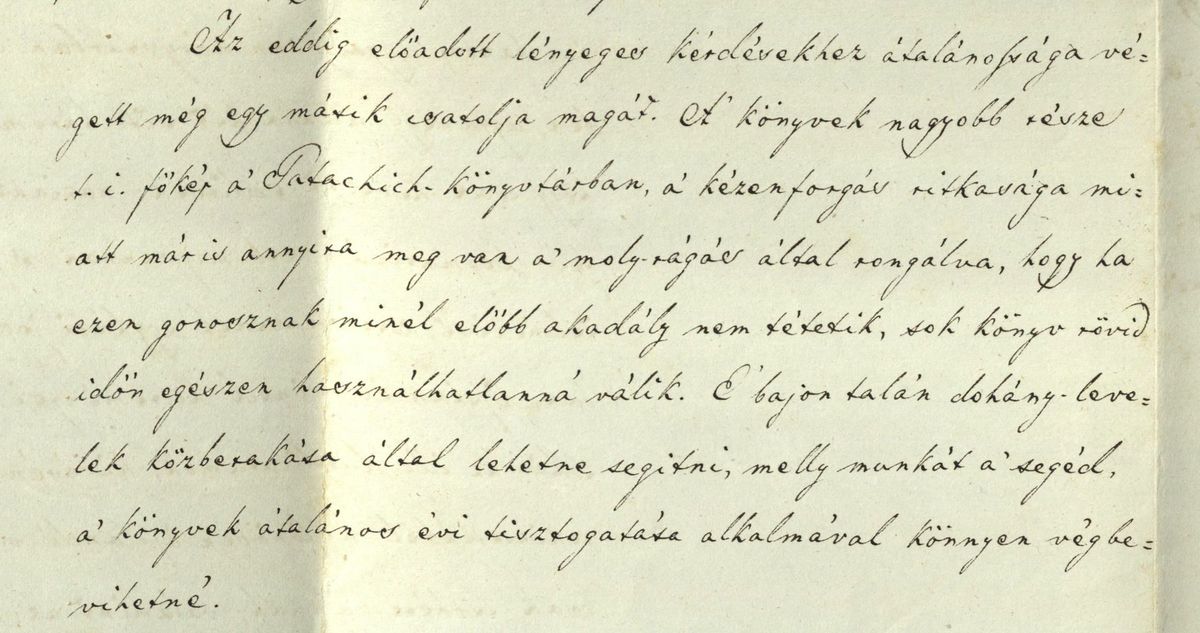 Az eddig előadott lényeges kérdésekhez átalánossága vé=
gett még egy másik csatolja magát. A' könyvek nagyobb része
t. i. főkép a' Patachich-könyvtárban, a' kézenforgás ritkasága mi=
att máris annyira meg van a' moly-rágás által rongálva, hogy ha
ezen gonosznak minél előbb akadály nem tétetik, sok könyv rövid
időn egészen használhatlanná válik. E' bajon talán dohány-leve=
lek közberakása által lehetne segitni, melly munkát a' segéd,
a' könyvek átalános évi tisztogatása alkalmával könnyen végbe=
vihetné.